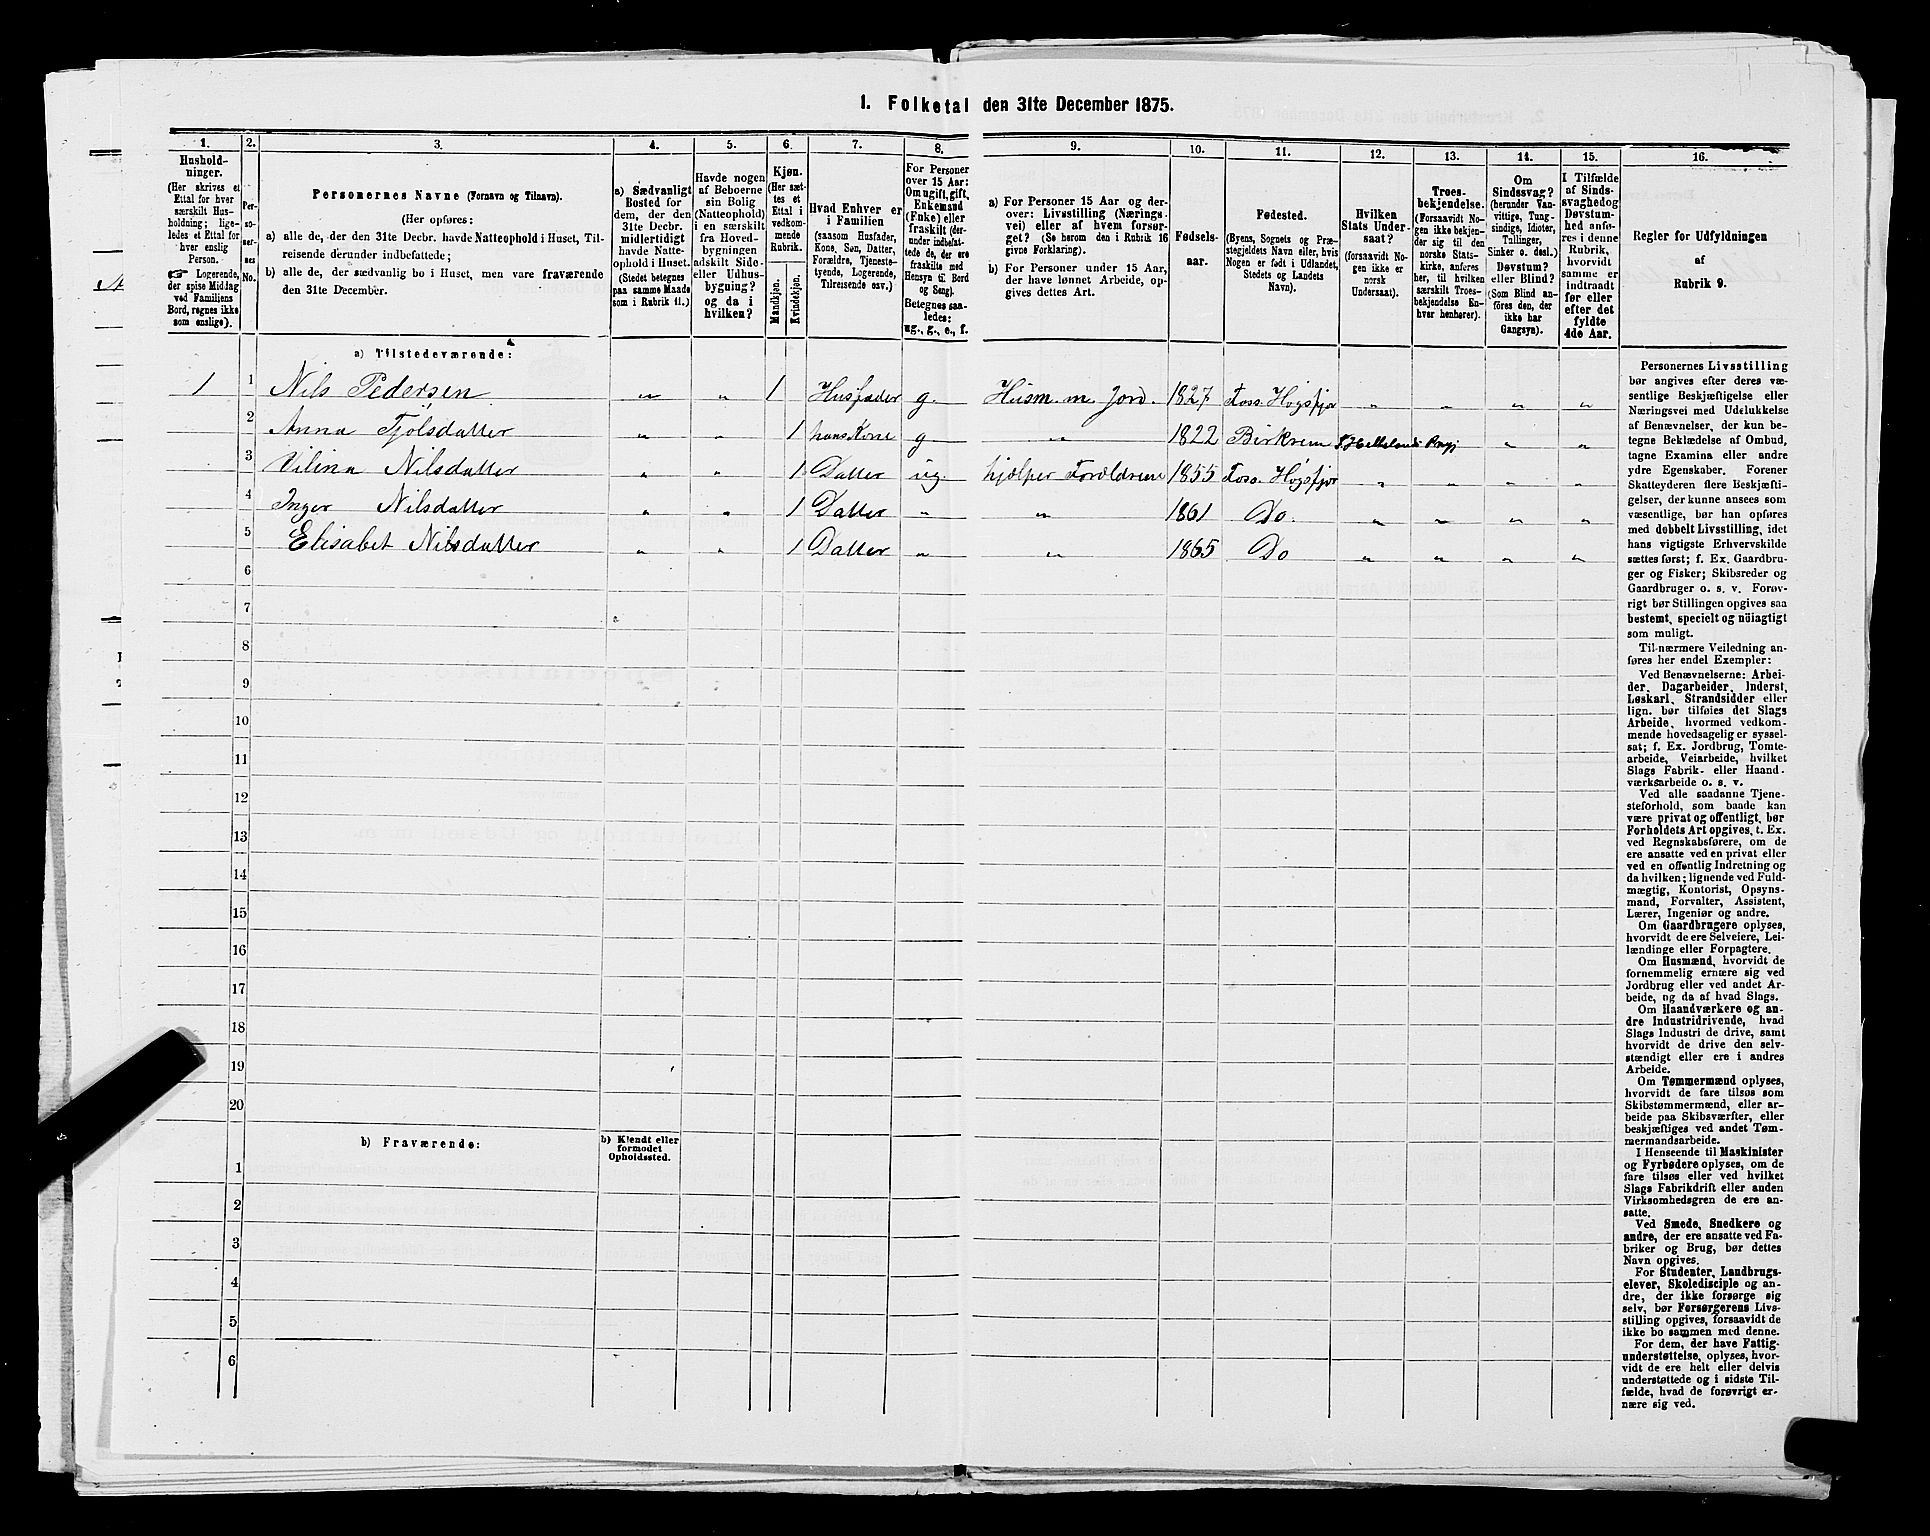 1. Folketal den 31te December 1875.
1.
Hushold-
ninger.
(Her skrives et
Ettal for hver
særskilt Hus-
holdning; lige-
ledes et Ettal for
hver enslig
Person.
☞ Logerende,
der spise Middag
ved Familiens
Bord, regnes ikke
som enslige).
2.
Per-
so-
ner-
nes
No.
3.
Personernes Navne (Fornavn og Tilnavn).
(Her opføres:
a) alle de, der den 31te Decbr. havde Natteophold i Huset, Til-
reisende derunder indbefattede;
b) alle de, der sædvanlig bo i Huset, men vare fraværende
den 31te December.
4.
a) Sædvanligt
Bosted for
dem, der den
31te Decbr.
midlertidigt
havde Natte-
ophold i Huset.
(Stedet betegnes
paa samme Maade
som i Rubrik 11.)
5.
Havde nogen
af Beboerne
sin Bolig
(Natteophold)
i en særskilt
fra Hoved-
bygningen
adskilt Side-
eller Udhus-
bygning?
og da i
hvilken?
6.
Kjøn.
(Her sæt-
tes et
Ettal i
vedkom-
mende
Rubrik.
Mandkjøn.
Kvindekjøn.
7.
Hvad Enhver er
i Familien
(saasom Husfader,
Kone, Søn, Datter,
Forældre, Tjeneste-
tyende, Logerende,
Tilreisende osv.)
8.
For Personer
over 15 Aar:
Om ugift, gift,
Enkemand
(Enke) eller
fraskilt (der-
under indbefat-
tede de, der ere
fraskilte med
Hensyn til Bord
og Seng).
Betegnes saa-
ledes:
ug., g., e., f.
9.
a) For Personer 15 Aar og der-
over: Livsstilling (Nærings-
vei) eller af hvem forsør-
get? (Se herom den i Rubrik 16
givne Forklaring).
b) For Personer under 15 Aar,
der have lønnet Arbeide, op-
gives dettes Art.
10.
Fødsels-
aar.
11.
Fødested.
(Byens, Sognets og Præ-
stegjeldets Navn eller, hvis
Nogen er født i Udlandet,
Stedets og Landets
Navn).
12.
Hvilken
Stats Under-
saat?
(forsaavidt No-
gen ikke er
norsk
Undersaat).
13.
Troes-
bekjendelse.
(Forsaavidt No-
gen ikke bekjen-
der sig til den
norske Stats-
kirke, anføres
her, til hvilken
særskilt Troes-
bekjendelse En-
hver henhører).
14.
Om
Sindssvag?
(herunder Van-
vittige, Tung-
sindige, Idioter,
Tullinger,
Sinker o. desl.)
Døvstum?
eller Blind?
(Som Blind an-
føres den, der
ikke har
Gangsyn).
15.
I Tilfælde
af Sinds-
svaghed og
Døvstum-
hed anfø-
res i denne
Rubrik,
hvorvidt
samme er
indtraadt
før eller
efter det
fyldte
4de Aar.
16.
Regler for Udfyldningen
af
Rubrik 9.
a) Tilstedeværende:
1 1 Nils Pedersen „ „ 1 Husfader g. Husm. m. Jord. 1827 Foss. Høgsfjor „ „ „ „
2 Anna Tjølsdatter „ „ 1 hans Kone g „ 1822 Birkrem Hellelands Prgj „ „
3 Vilina Nilsdatter „ „ 1 Datter ug. hjælper Forældrene 1855 Foss. Høgsfjor „ „ „ „
4 Inger Nilsdatter „ „ 1 Datter „ „ 1861 Do. „ „ „ „
5 Elisabet Nilsdatter „ „ 1 Datter „ „ 1865 Do „ „ „ „
6
7
8
9
10
11
12
13
14
15
16
17
18
19
20
b) Fraværende:
b) Kjendt eller
formodet
Opholdssted.
1
2
3
4
5
6
Personernes Livsstilling
bør angives efter deres væ-
sentlige Beskjæftigelse eller
Næringsvei med Udelukkelse
af Benævnelser, der kun be-
tegne Beklædelse af Ombud,
tagne Examina eller andre
ydre Egenskaber. Forener
Skatteyderen flere Beskjæfti-
gelser, der kunne ansees som
væsentlige, bør han opføres
med dobbelt Livsstilling, idet
hans vigtigste Erhvervskilde
sættes først; f. Ex. Gaardbru-
ger og Fisker; Skibsreder og
Gaardbruger o. s. v. Forøv-
rigt bør Stillingen opgives saa
bestemt, specielt og nöiagtigt
som muligt.
Til nærmere Veiledning an-
føres her endel Exempler:
Ved Benævnelserne: Arbei-
der, Dagarbeider, Inderst,
Løskarl, Strandsidder eller
lign. bør tilføies det Slags
Arbeide, hvormed vedkom-
mende hovedsagelig er syssel-
sat; f. Ex. Jordbrug, Tomte-
arbeide, Veiarbeide, hvilket
Slags Fabrik- eller Haand-
værksarbeide o. s. v.
Ved alle saadanne Tjene-
steforhold, som baade kan
være privat og offentligt, bør
Forholdets Art opgives, t. Ex.
ved Regnskabsførere, om de
ere ansatte ved en privat eller
ved en offentlig Indretning og
da hvilken; lignende ved Fuld-
mægtig, Kontorist, Opsyns-
mand, Forvalter, Assistent,
Lærer, Ingeniør og andre.
Om Gaardbrugere oplyses,
hvorvidt de ere Selveiere, Lei-
lændinge eller Forpagtere.
Om Husmænd, hvorvidt de
fornemmelig ernære sig ved
Jordbrug eller ved andet Ar-
beide, og da af hvad Slags.
Om Haandværkere og an-
dre Industridrivende, hvad
Slags Industri de drive, samt
hvorvidt de drive den selv-
stændigt eller ere i andres
Arbeide.
Om Tømmermænd oplyses,
hvorvidt de fare tilsøs som
Skibstømmermænd, eller ar-
beide paa Skibsværfter, eller
beskjæftiges ved andet Tøm-
mermandsarbeide.
I Henseende til Maskinister
og Fyrbødere oplyses, om de
fare tilsøs eller ved hvilket
Slags Fabrikdrift eller anden
Virksomhedsgren de ere an-
satte.
Ved Smede, Snedkere og
andre, der ere ansatte ved Fa-
briker og Brug, bør dettes
Navn opgives.
For Studenter, Landbrugs-
elever, Skoledisciple og an-
dre, der ikke forsørge sig
selv, bør Forsørgerens Livs-
stilling opgives, forsaavidt de
ikke bo sammen med denne.
For dem, der have Fattig-
understøttelse, oplyses, hvor-
vidt de ere helt eller delvis
understøttede og i sidste Til-
fælde, hvad de forøvrigt er-
nære sig ved.